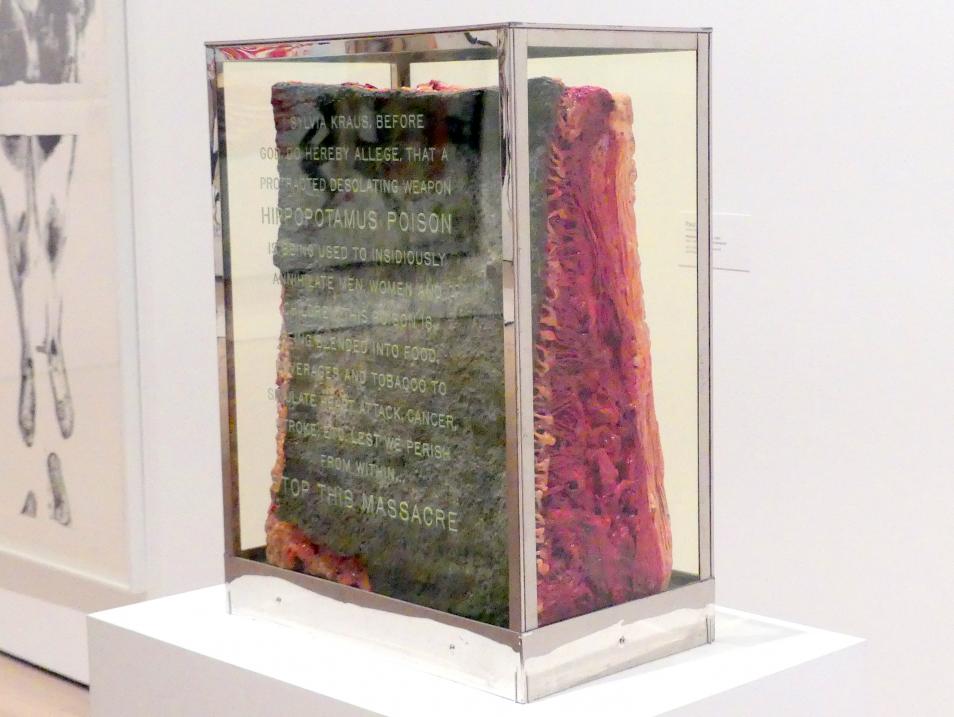 SYLVIA KRAUS, BEFORE
GOD DO HEREBY ALLEGE, THAT A
PROTRACTED DESOLATING WEAPON
HIPPOPOTAMUS POISON
IS BEING USED TO INSIDIOUSLY
ANNIHILATE MEN, WOMEN AND
CHILDREN. THIS POISON IS
BEING BLENDED INTO FOOD,
BEVERAGES AND TOBACCO TO
SIMULATE HEART ATTACK, CANCER,
STROKE, ETC. LEST WE PERISH
FROM WITHIN...
STOP THIS MASSACRE